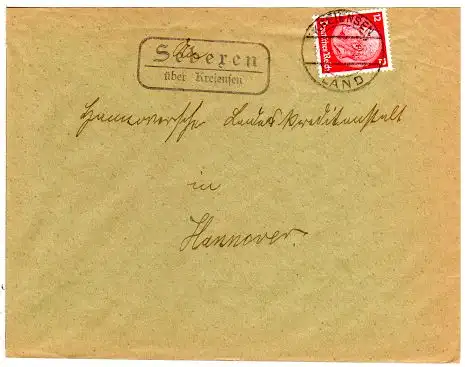 Sebexen
über Kreiensen
12
Deutsches Reich
LAND
Hannoversche Landeskreditanstalt
in
Hannover.